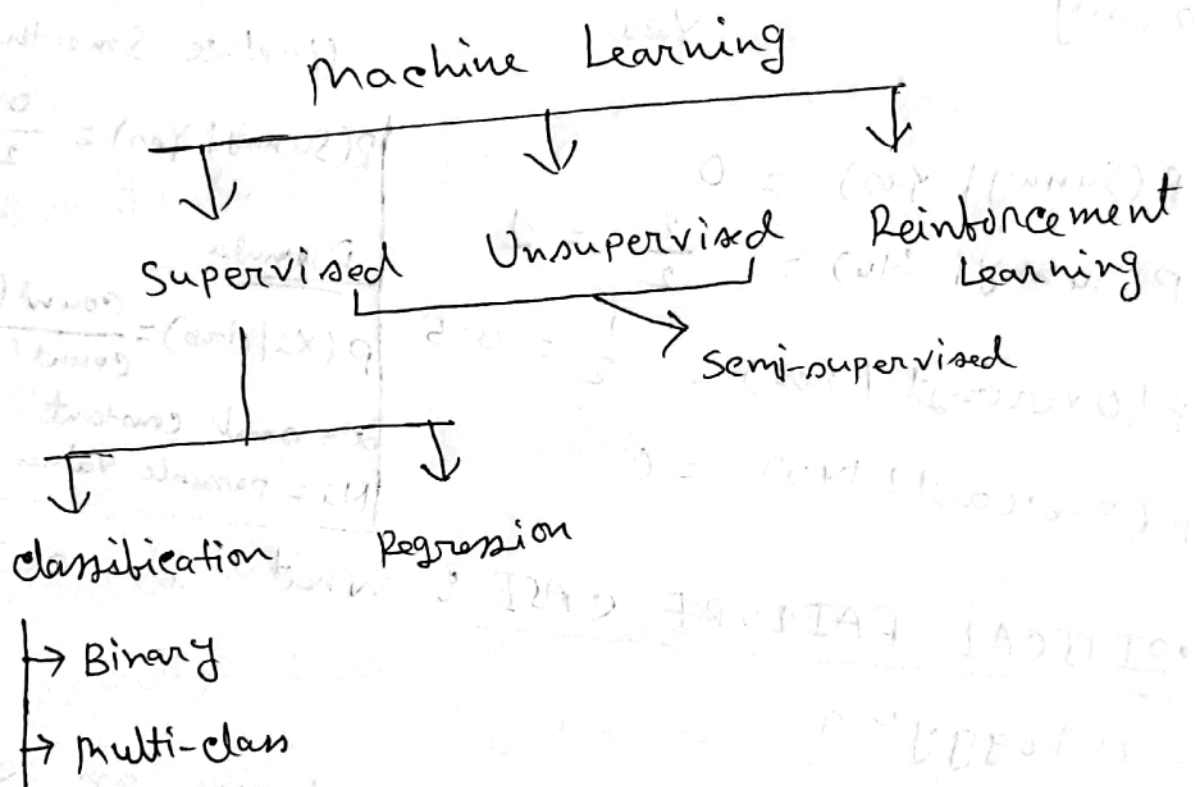 Machine Learning
Supervised
Unsupervised
Reinforcement
Learning
Semi-supervised
Classification
Regression
→ Binary
→ Multi-class